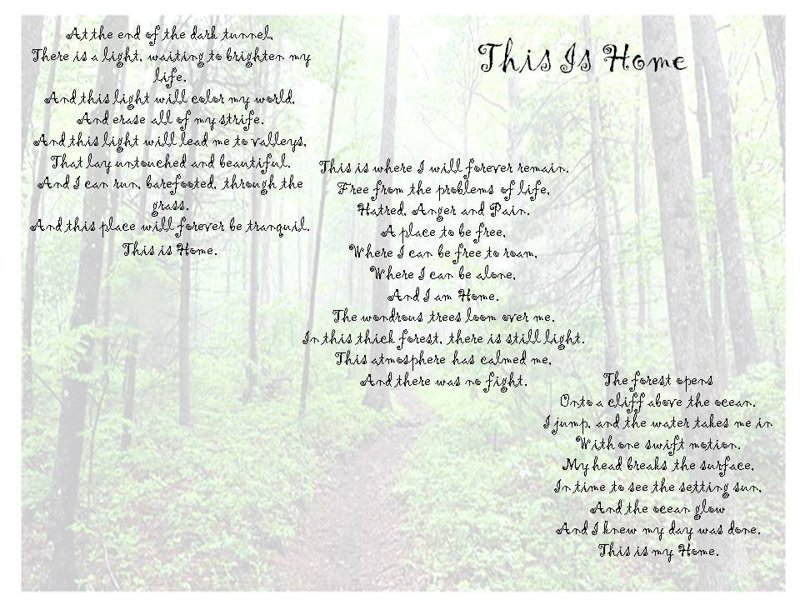 This Is Home
At the end of the dark tunnel,
There is a light, waiting to brighten my
life.
And this light will color my world,
And erase all of my strife.
And this light will lead me to valleys,
That lay untouched and beautiful.
And I can run, barefooted, through the
grass.
And this place will forever be tranquil.
This is Home.
This is where I will forever remain.
Free from the problems of life,
Hatred, Anger and Pain.
A place to be free,
Where I can be free to roam,
Where I can be alone,
And I am Home.
The wondrous trees loom over me.
In this thick forest, there is still light.
This atmosphere has calmed me,
And there was no fight.
The forest opens
Onto a cliff above the ocean.
I jump, and the water takes me in
With one swift motion.
My head breaks the surface,
In time to see the setting sun,
And the ocean glow
And I knew my day was done.
This is my Home.